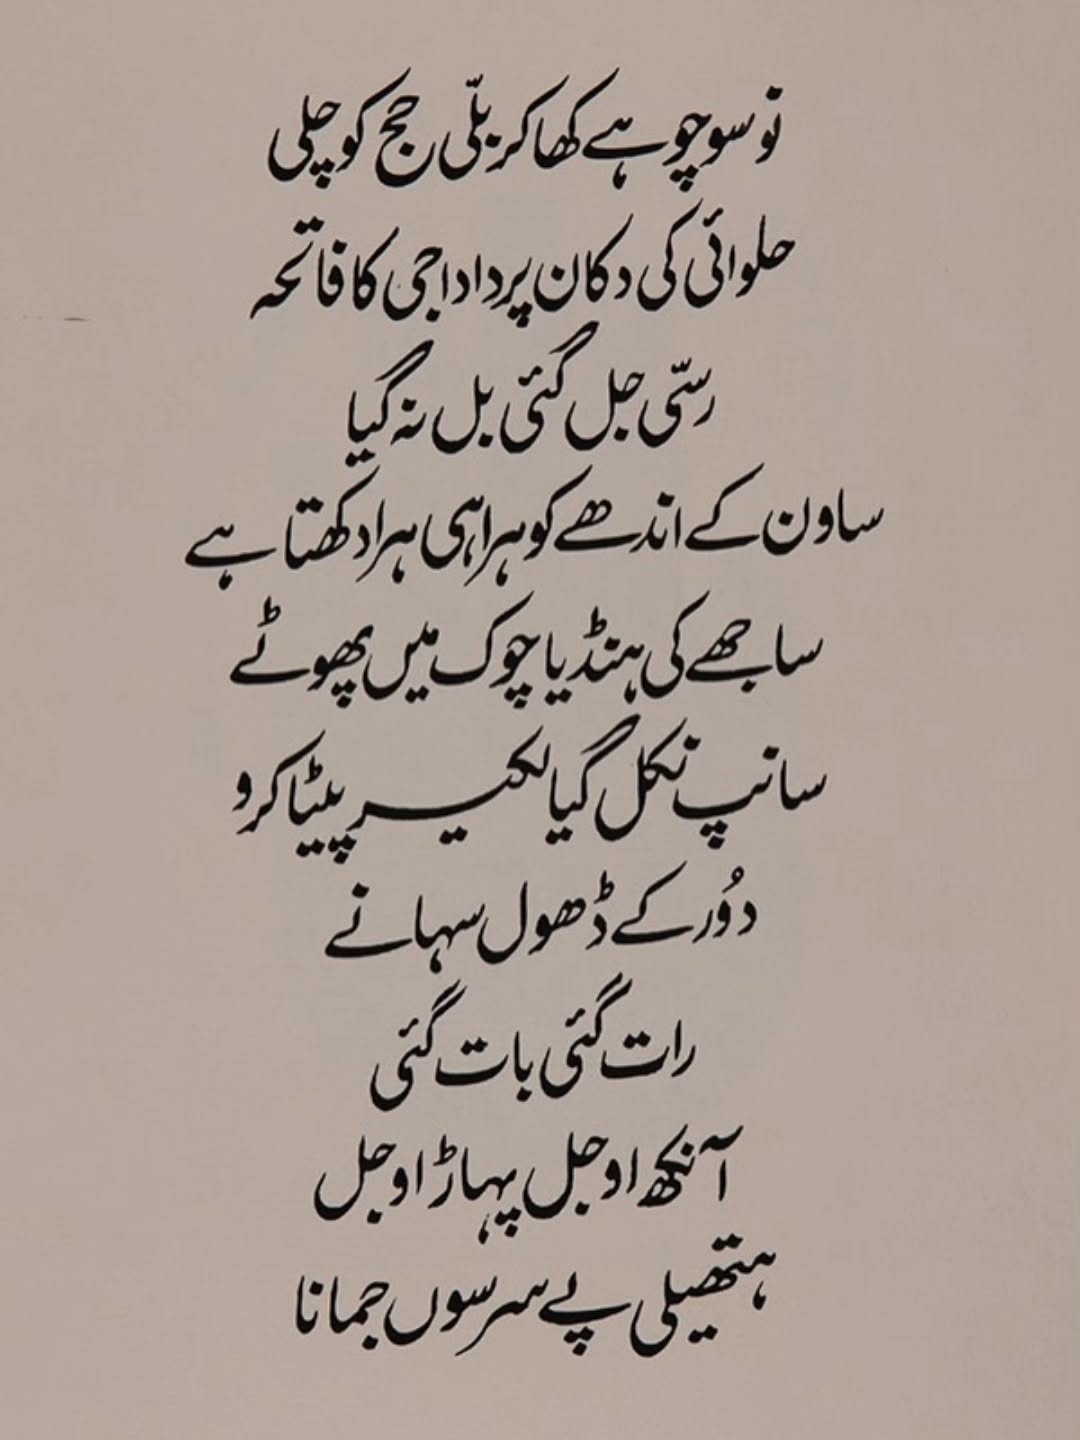 نو سو چوہے کھا کر بلّی حج کو چلی
حلوائی کی دکان پر دادا جی کا فاتحہ
رسّی جل گئی بل نہ گیا
ساون کے اندھے کو ہرا ہی ہرا دکھتا ہے
ساجھے کی ہنڈیا چوک میں پھوٹے
سانپ نکل گیا لکیر پیٹا کرو
دُور کے ڈھول سہانے
رات گئی بات گئی
آنکھ اوجل پہاڑ اوجل
ہتھیلی پے سرسوں جمانا